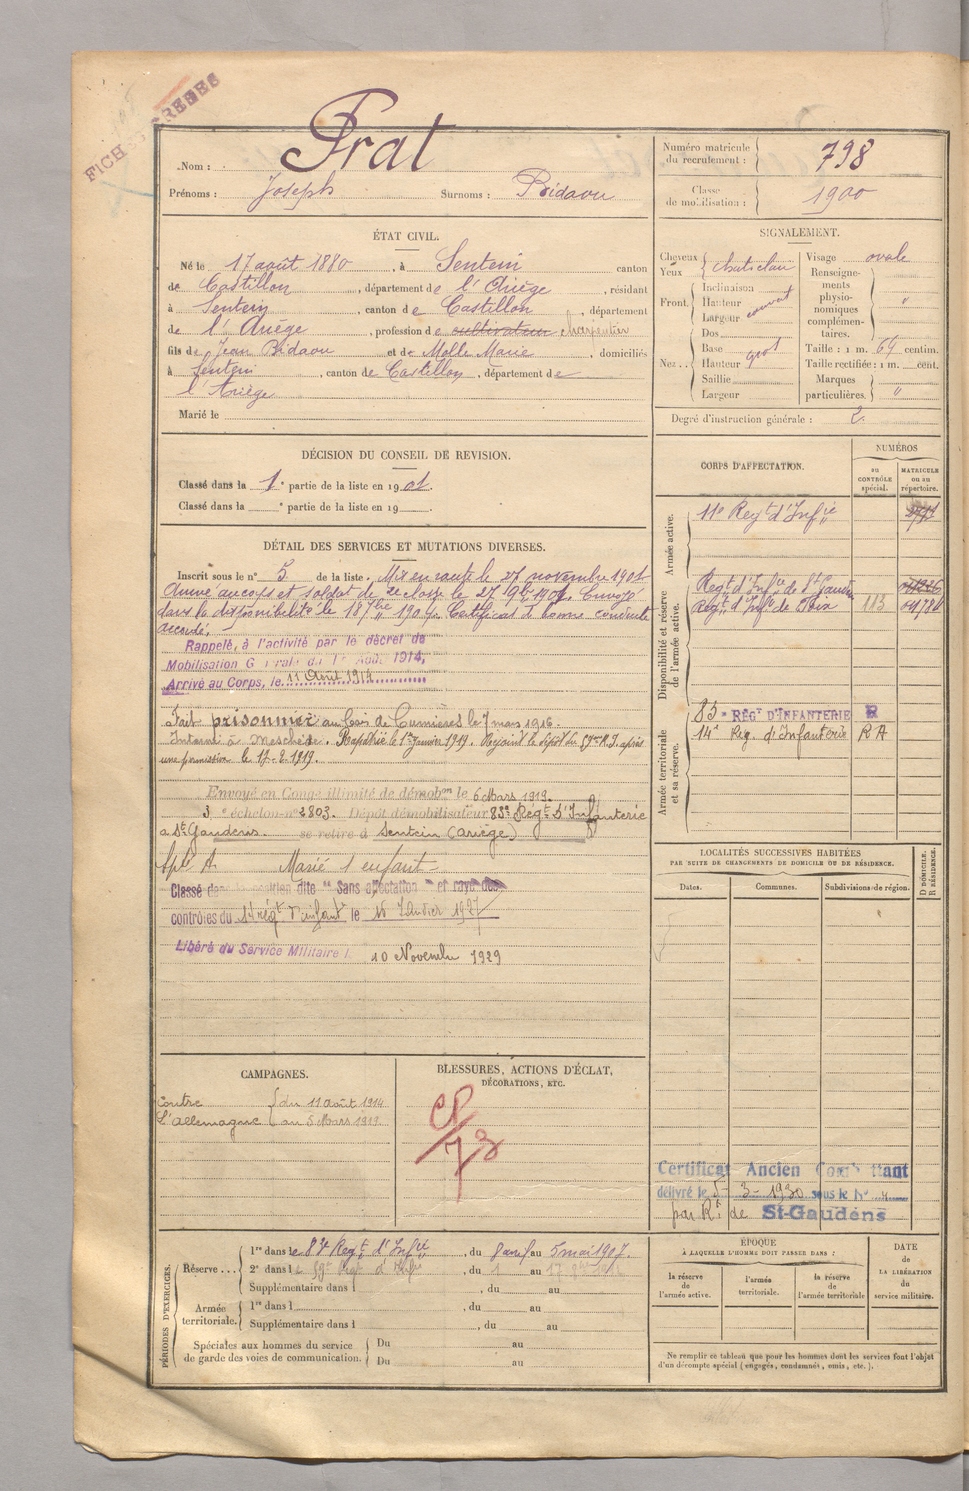 FICH
Prat
Nom :
Prénoms : Joseph Surnoms : Bidaou
Numéro matricule
du recrutement : 798
Classe
de mobilisation : 1900
ÉTAT CIVIL.
Né le 17 août 1880, à Sentein canton
de Castillon, département de l'Ariège, résidant
à Sentein, canton de Castillon, département
de l'Ariège, profession de cultivateur charpentier
fils de Jean Bidaou et de Molle Marie, domiciliés
à Sentein, canton de Castillon, département de
l'Ariège
Marié le
SIGNALEMENT.
Cheveux
Yeux chat clair
Inclinaison
Front. Hauteur couvert
Largeur
Dos
Base
Nez .. Hauteur gros
Saillie
Largeur
Visage ovale
Renseigne-
ments
physio-
nomiques
complémen-
taires. "
Taille : 1 m. 69 centim.
Taille rectifiée : 1 m. cent.
Marques
particulières. "
Degré d'instruction générale : 2
DÉCISION DU CONSEIL DE REVISION.
Classé dans la 1e partie de la liste en 1901.
Classé dans la e partie de la liste en 19
DÉTAIL DES SERVICES ET MUTATIONS DIVERSES.
Inscrit sous le n° 5 de la liste. Mis en route le 27 novembre 1901
Arrivé au corps et soldat de 2e classe le 27 9bre 1901. Envoyé
dans la disponibilité le 18 7bre 1904. Certificat de bonne conduite
accordé.
Rappelé, à l'activité par le décret de
Mobilisation G rale du 1er Août 1914,
Arrivé au Corps, le 11 Août 1914
Fait prisonnier au bois de Cumières le 7 mars 1916.
Interné à Meschède. Rapatrié le 1er Janvier 1919. Rejoint le dépôt du 59e R.I. après
une permission le 17-2-1919.
Envoyé en Congé illimité de démobon le 6 Mars 1919.
3e échelon n° 2803. Dépôt démobilisateur 83e Régt d'Infanterie
a St Gaudens. se retire à Sentein (Ariège)
Marié 1 enfant
Classé dans la position dite "Sans affectation" et rayé des
contrôles du 14 régt d'infant le 16 Janvier 1927
Libéré du Service Militaire l 10 Novembre 1929
CORPS D'AFFECTATION.
NUMÉROS
au
CONTRÔLE
spécial.
MATRICULE
ou au
répertoire.
Armée active.
11e Regt d'Infie
Disponibilité et réserve
de l'armée active.
Regt d'Infie de St Gaudens
Regt d'Infie de Foix 113 01784
Armée territoriale
et sa réserve.
83e RÉGt D'INFANTERIE R
14e Reg. d'Infanterie RA
LOCALITÉS SUCCESSIVES HABITÉES
PAR SUITE DE CHANGEMENTS DE DOMICILE OU DE RÉSIDENCE.
D DOMICILE.
R RÉSIDENCE.
Dates.
Communes.
Subdivisions de région.
CAMPAGNES.
contre du 11 août 1914
l'allemagne au 5 Mars 1919.
BLESSURES, ACTIONS D'ÉCLAT,
DÉCORATIONS, ETC.
CP
73
Certificat Ancien Combattant
délivré le 5-3-1930 sous le N°
par Rt de St-Gaudens
PÉRIODES D'EXERCICES.
Réserve ... 1re dans le 83e Regt d'Infie, du 8 avril au 5 mai 1907.
2e dans le 59e Regt d'Infie, du 1 au 17
Supplémentaire dans l , du au
Armée
territoriale. 1re dans l , du au
Supplémentaire dans l , du au
Spéciales aux hommes du service
de garde des voies de communication. Du au
Du au
ÉPOQUE
À LAQUELLE L'HOMME DOIT PASSER DANS :
la réserve
de
l'armée active.
l'armée
territoriale.
la réserve
de
l'armée territoriale
DATE
de
LA LIBÉRATION
du
service militaire.
Ne remplir ce tableau que pour les hommes dont les services font l'objet
d'un décompte spécial (engagés, condamnés, omis, etc.).